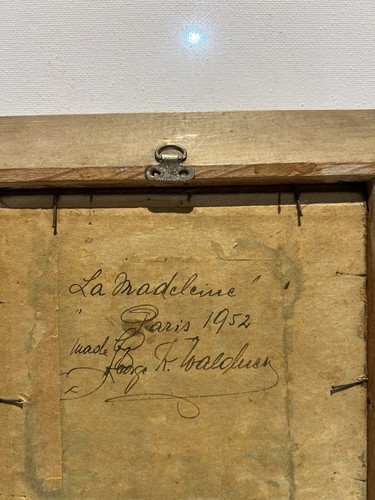 "La Madeleine"
Paris 1952
made by
George R.